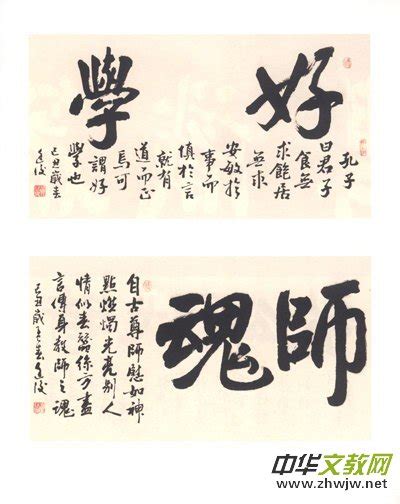 好學
孔子
曰君子
食無
求飽居
無求
安敏於
事而
慎於言
就有
道而正
焉可
謂好
學也
己丑歲春
師魂
自古尊師如神
點燃燭光亮别人
情似春蠶絲方盡
言傳身教師之魂
己丑歲春
中华文教网
www.zhwjw.net